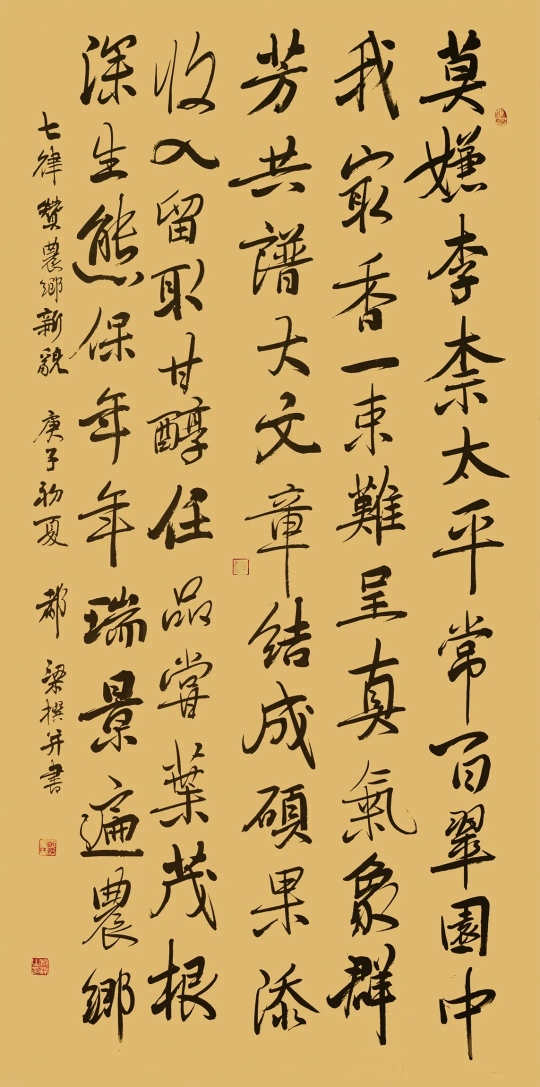 莫嫌李柰太平常百翠園中
我最香一束難呈真氣象群
芳共譜大文章結成碩果添
收入留取甘醇任品嘗葉茂根
深生態保年年瑞景遍農鄉
七律贊農鄉新貌 庚子初夏 都梁撰并書